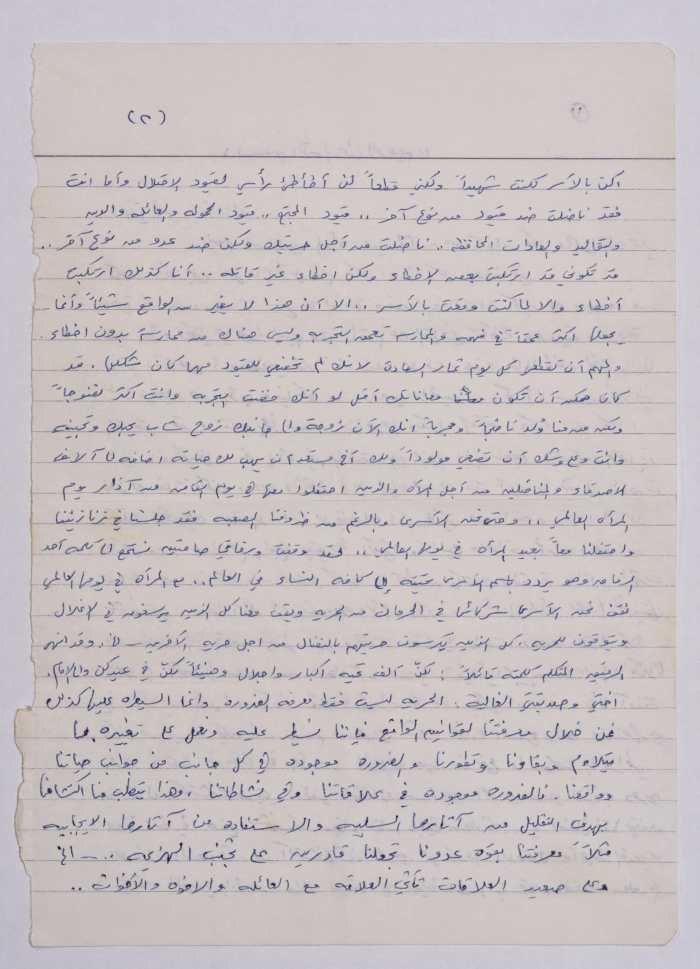 (٢)
اكن بالأسر لكنت شهيداً ولكني قطعاً لن أطأطئ رأسي لقيود الاحتلال وأما انت
فقد ناضلت ضد قيود من نوع آخر .. قيود المجتمع .. قيود الحموله والعائله والدين
والتقاليد والعادات المحافظه .. ناضلت من أجل حريتك ولكن ضد عدو من نوع آخر ..
قد تكوني قد ارتكبت بعض الاخطاء ولكن اخطاء غير قاتله .. أنا كذلك ارتكبت
أخطاء والا لما كنت وقعت بالأسر .. الا أن هذا لا يغير من الواقع شيئاً وأنما
يجعلنا اكثر عمقاً في فهمه والممارسه تعمق التجربه وليس هناك من ممارسة بدون اخطاء .
والمهم أن تقطفي كل يوم ثمار السعادة لانك لم تخضعي للقيود مهما كان شكلها . قد
كان ممكن أن تكون معاناتك أقل لو أنك خضت التجربه وانت اكثر نضوجاً
ولكن من منا وُلد ناضجاً ومجرباً انك الآن زوجة والى جانبك زوج شاب يحبك وتحبينه
وانت وعلى وشك أن تضعي مولوداً ولك أخ مستعد أن يهب لك حياته اضافه الى آلاف
الاصدقاء والمناضلين من أجل المرأه والذين احتفلوا معك في يوم الثامن من آذار يوم
المرأه العالمي .. وحتى نحن الأسرى وبالرغم من ظروفنا الصعبه فقد جلسنا في زنازيننا
واحتفلنا معاً بعيد المرأه في يومها العالمي .. لقد وقفت ورفاقي صامتين نستمع الى كلمة أحد
الرفاق وهو يردد باسم الأسرى تحيته الى كافة النساء في العالم .. مع المرأه في يومها العالمي
نقف نحن الأسرى شركائها في الحرمان من الحريه ويقف معنا كل الذين يرسفون في الاغلال
ويتوقون للحريه ، كل الذين يكرسون حريتهم بالنضال من اجل حرية الآخرين - الخ . وقد انهى
الرفيق المتكلم كلمته قائلاً : لكنّ ألف تحيه اكبار واجلال وهنيئاً لكنّ في عيدكن والى الامام .
اختي وصديقتي الغالية . الحريه ليست فقط معرفه الضروره وانما السيطره عليها كذلك
فمن خلال معرفتنا لقوانين الواقع فإننا نسيطر عليه ونعمل على تغييره بما
يتلاءم وبقاؤنا وتطورنا والضروره موجوده في كل جانب من جوانب حياتنا
وواقعنا . فالضروره موجوده في علاقاتنا وفي نشاطاتنا ، وهذا يتطلب منا اكتشافها
بهدف التقليل من آثارها السلبيه والاستفاده من آثارها الايجابيه
مثلاً معرفتنا بقوه عدونا تجعلنا قادرين على تجنب الهزيمه .. الخ
وعلى صعيد العلاقات تأتي العلاقه مع العائله والاخوه والأخوات ..